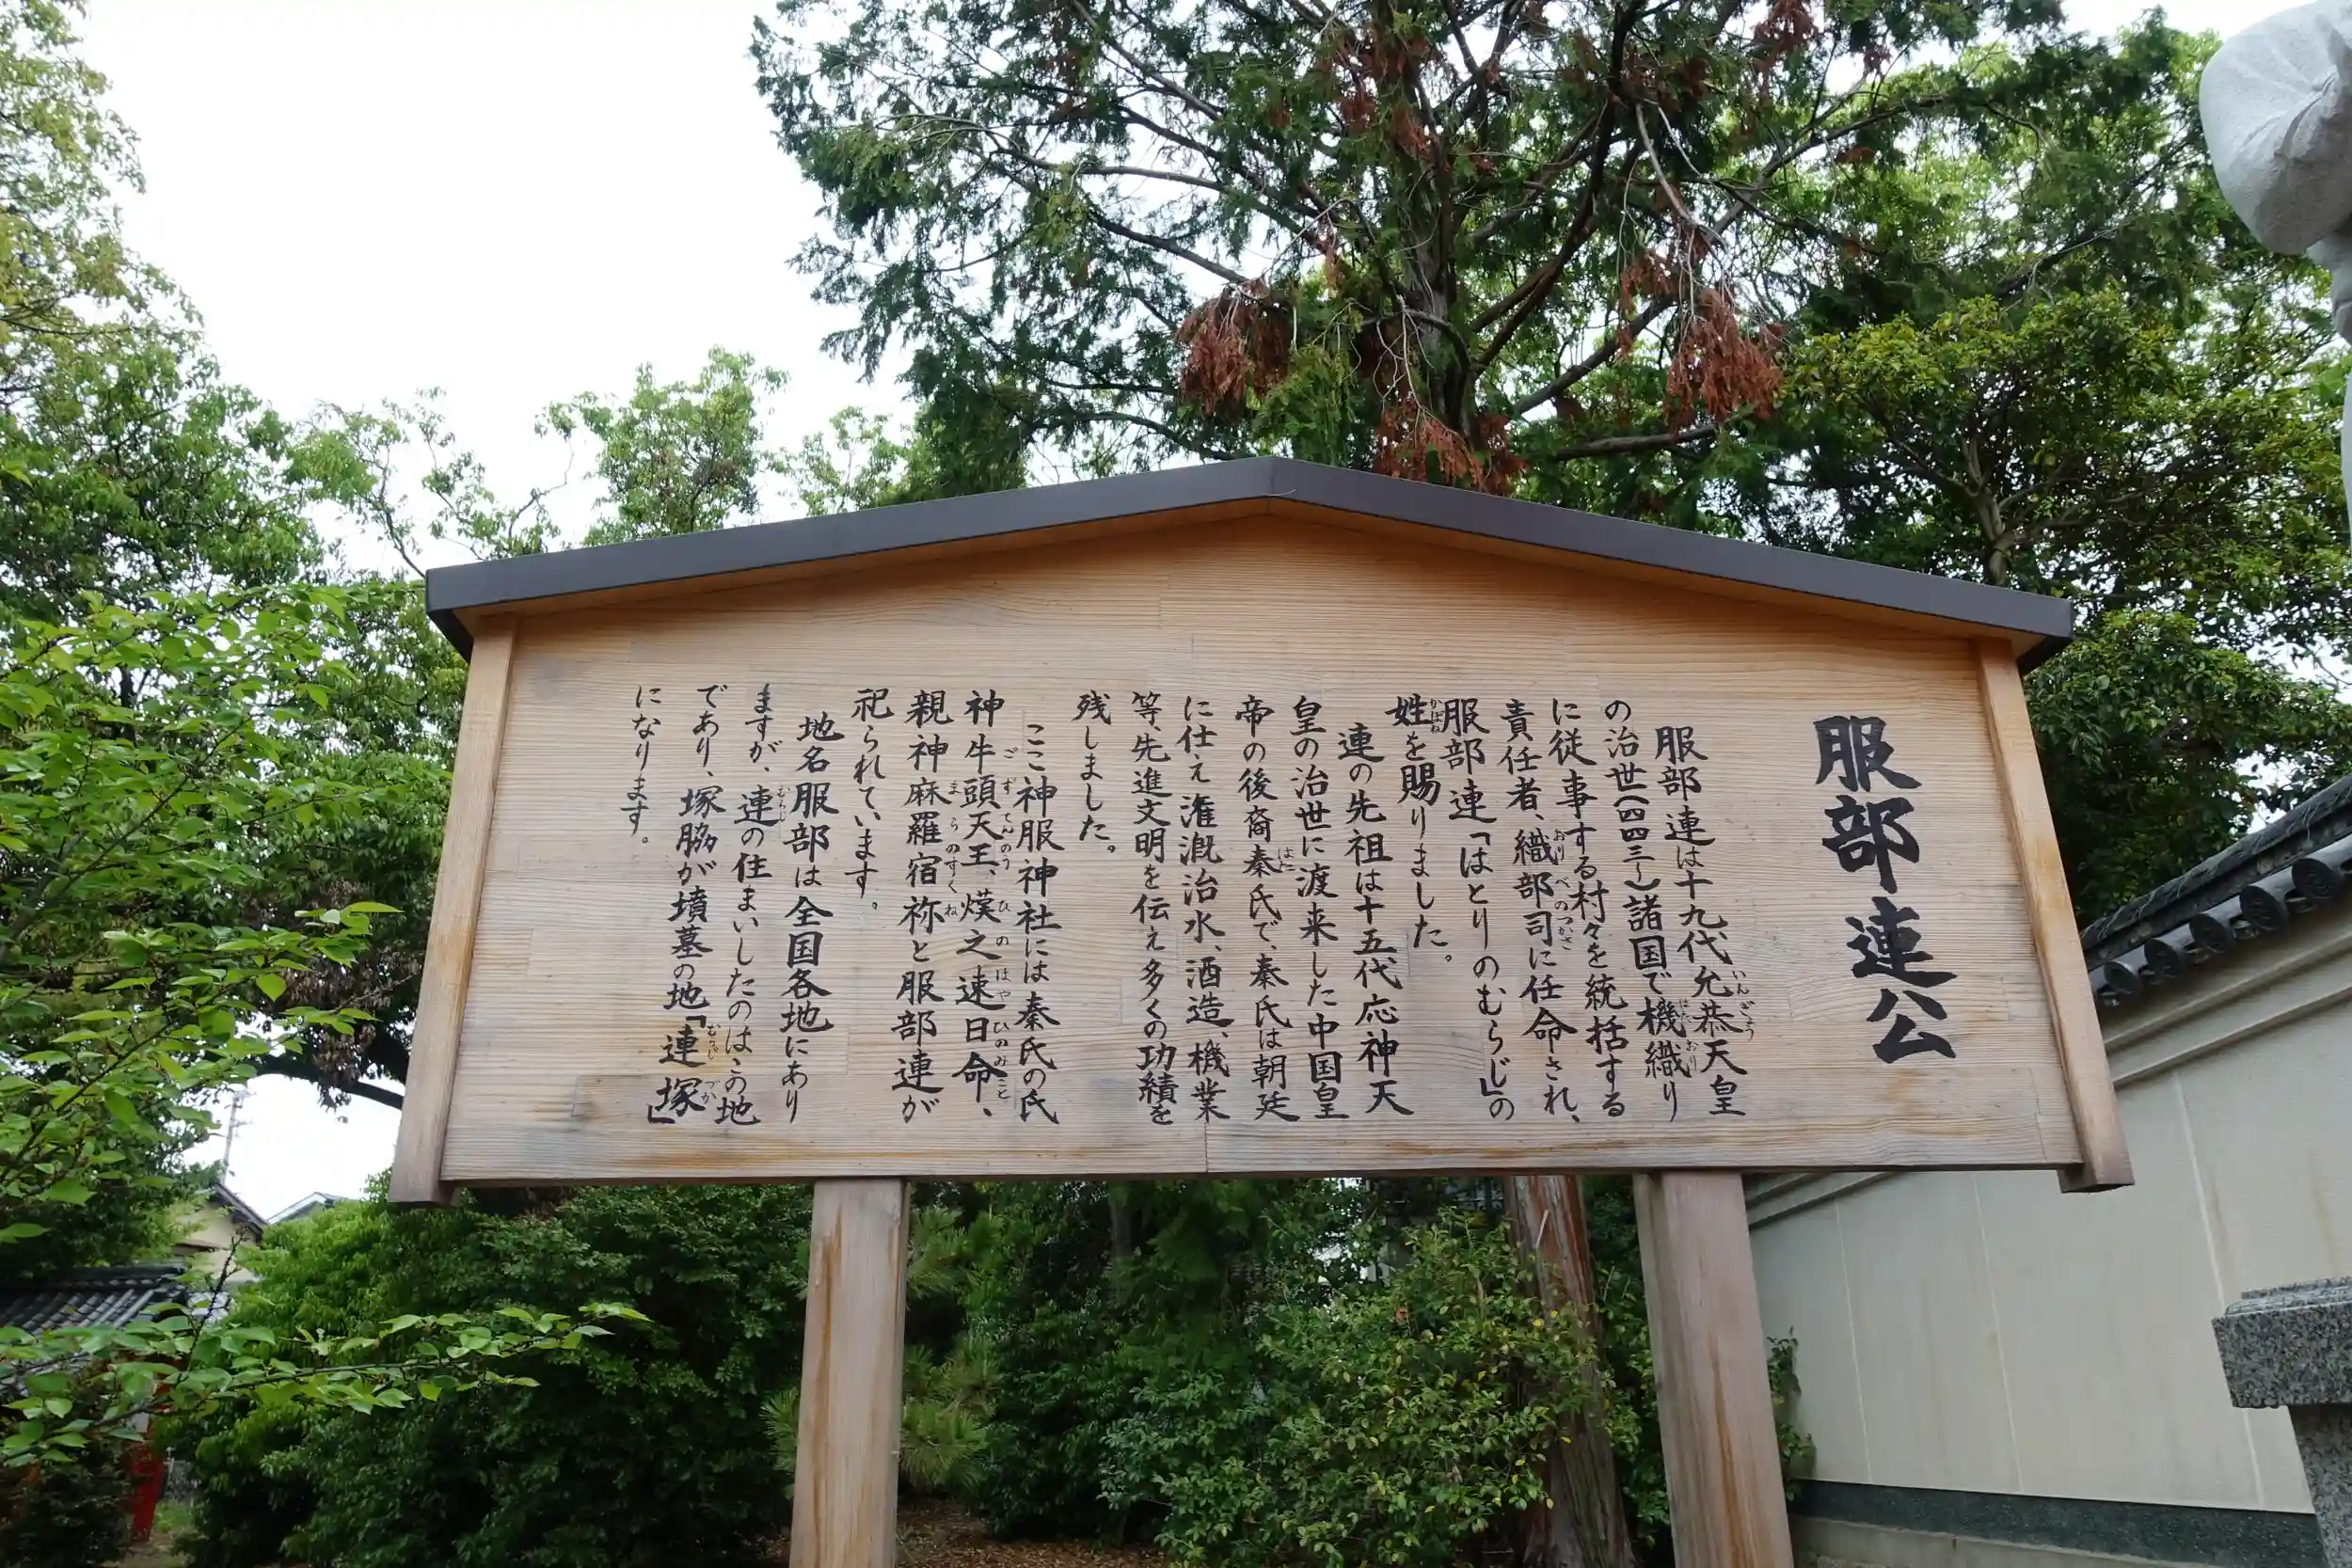 服部連公
服部連は十九代允恭天皇
の治世(四四三〜)諸国で機織り
に従事する村々を統括する
責任者、織部司に任命され、
服部連「はとりのむらじ」の
姓を賜りました。
連の先祖は十五代応神天
皇の治世に渡来した中国皇
帝の後裔秦氏で、秦氏は朝廷
に仕え潅漑治水、酒造、機業
等、先進文明を伝え多くの功績を
残しました。
ここ神服神社には秦氏の氏
神牛頭天王、熯之速日命、
親神麻羅宿祢と服部連が
祀られています。
地名服部は全国各地にあり
ますが、連の住まいしたのはこの地
であり、塚脇が墳墓の地「連塚」
になります。